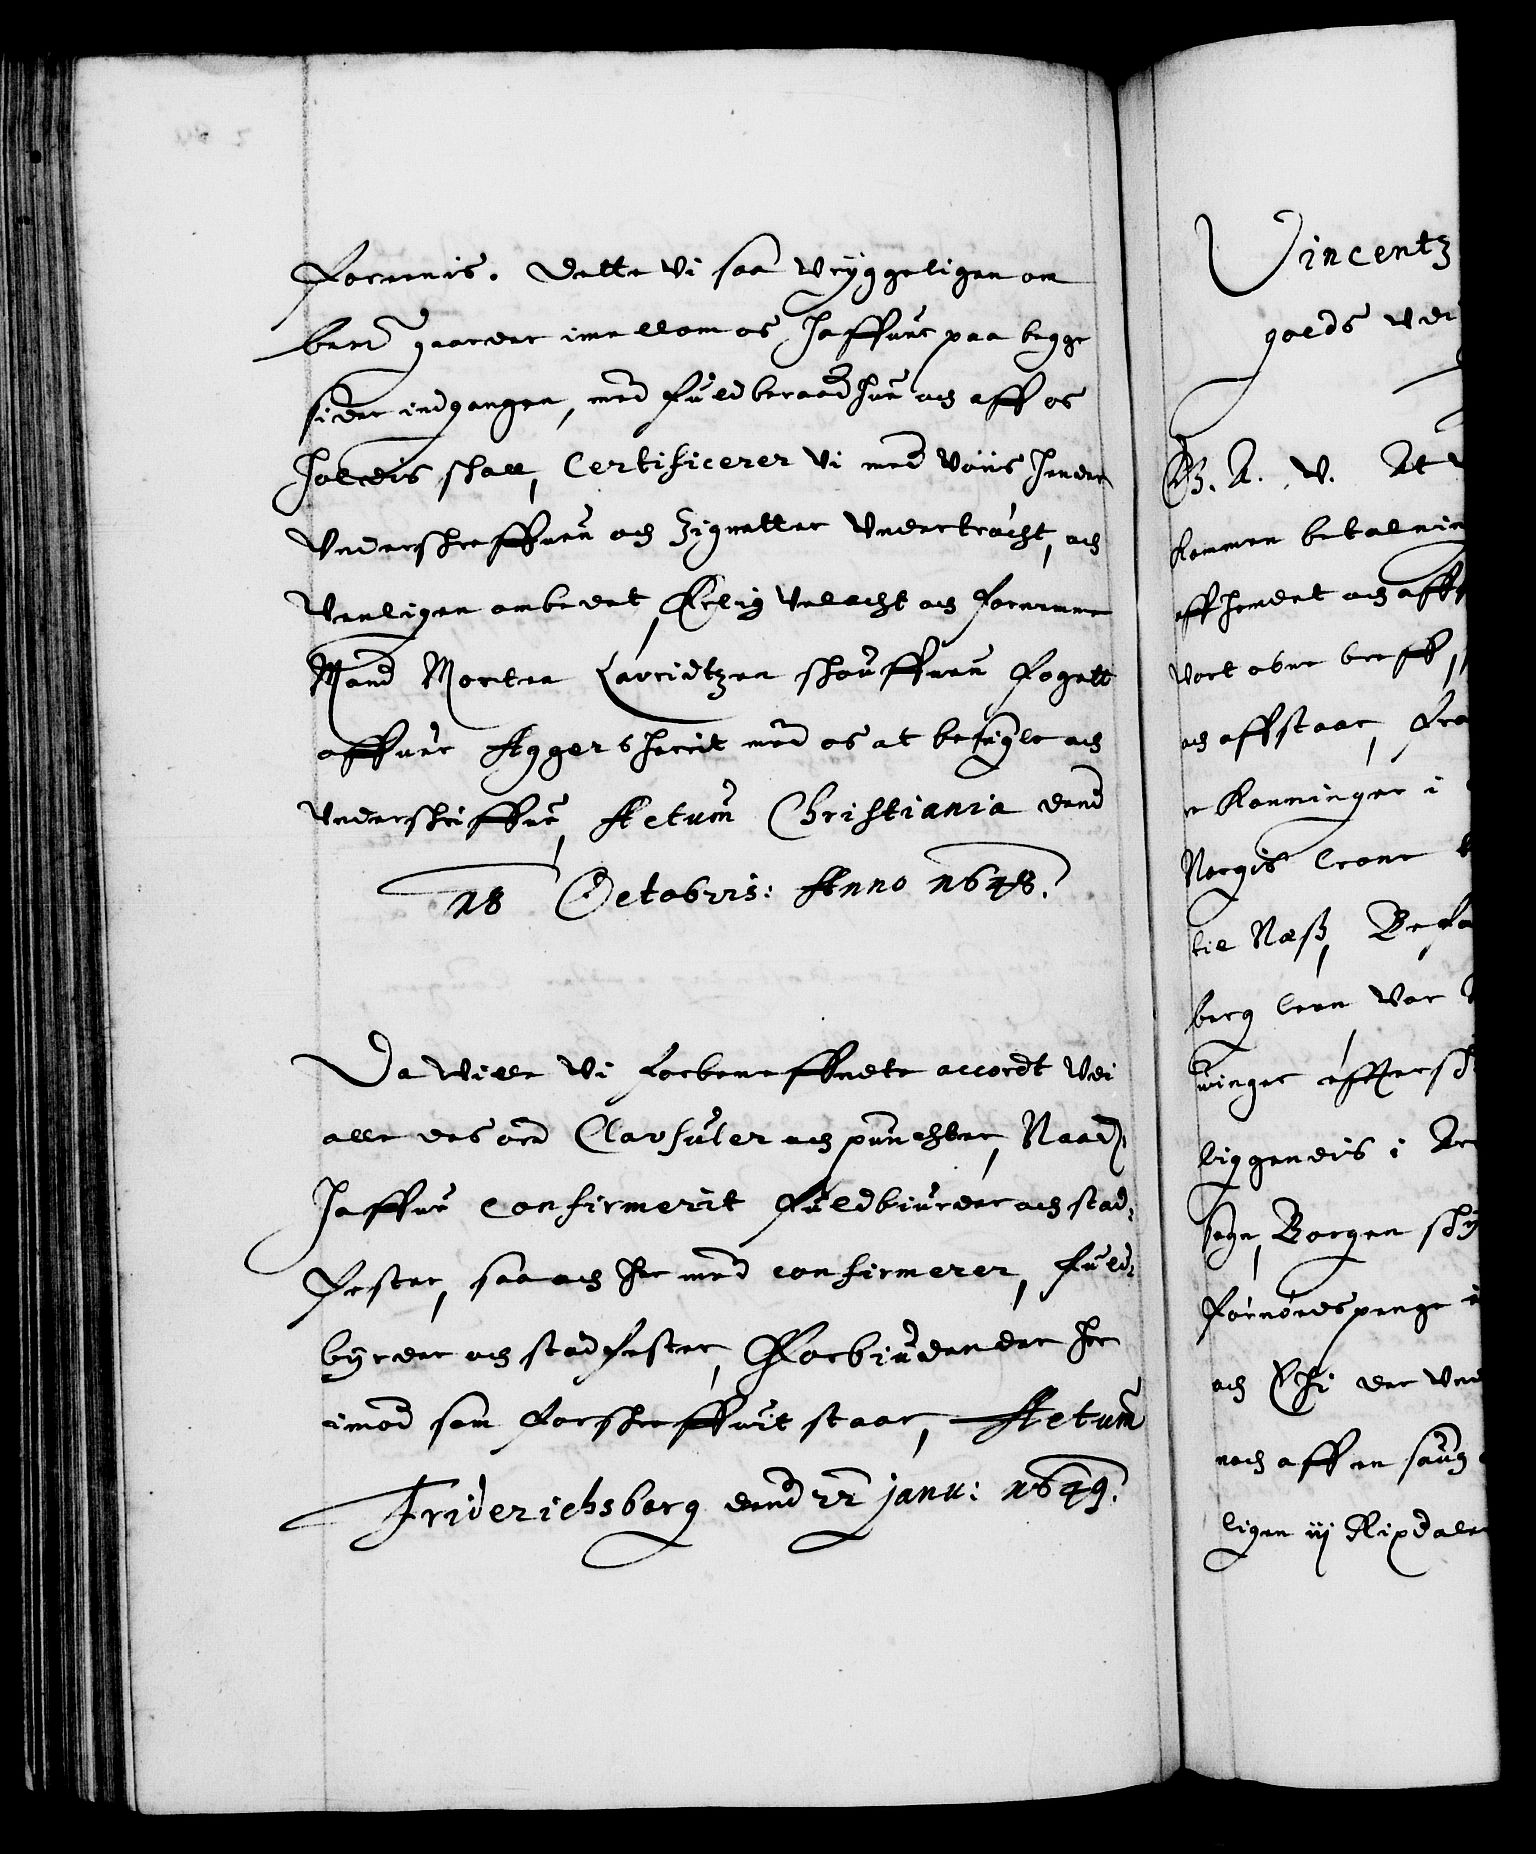 Foreenis. Dette Vi saa Vryggeligen om
berte gaarder imellom os Haffuer paa begge
sider indgangen, med Fuldberaad Hue och aff os
Holdis skall, Certificerer Vi med Voris Hender
Underskreffuen och Zignetter Undertrócht, och
Venligen ombedet, Erlig Velacht och Fornemme
Mand Morten Lauridtzen skouffuen Fogett
offuer Aggers Herrit med os at besigle och
Underskriffue, Actum Christiania dend
18 Octobris: Anno 1648.
Da Wille Vi Forbeneffndte accordt Vdi
alle des ord Clausuler och punchter, Naad:
Haffue Confirmerit Fuldbiurder och stad:
fester, saa och Her med confirmerer, Fuld:
byrder och stadfester, Forbiudendes Her
imod som Forskreffuit staar, Actum
Friderichsborg dend 22 Janu: 1649.
Vincentz
goeds vdi
G. A. V. At
Kommen betalnin
aff Hendet och aff
Vort obne breff,
och affstaar, Fra
e Konninger i
Norgis Crone
til Næss, Befa
berg leen Vor
winger effter
liggendis i
sogn, Borgen sky
Fornóedspenge
och der Und
noch aff en saug
ligen iij Rixdaler